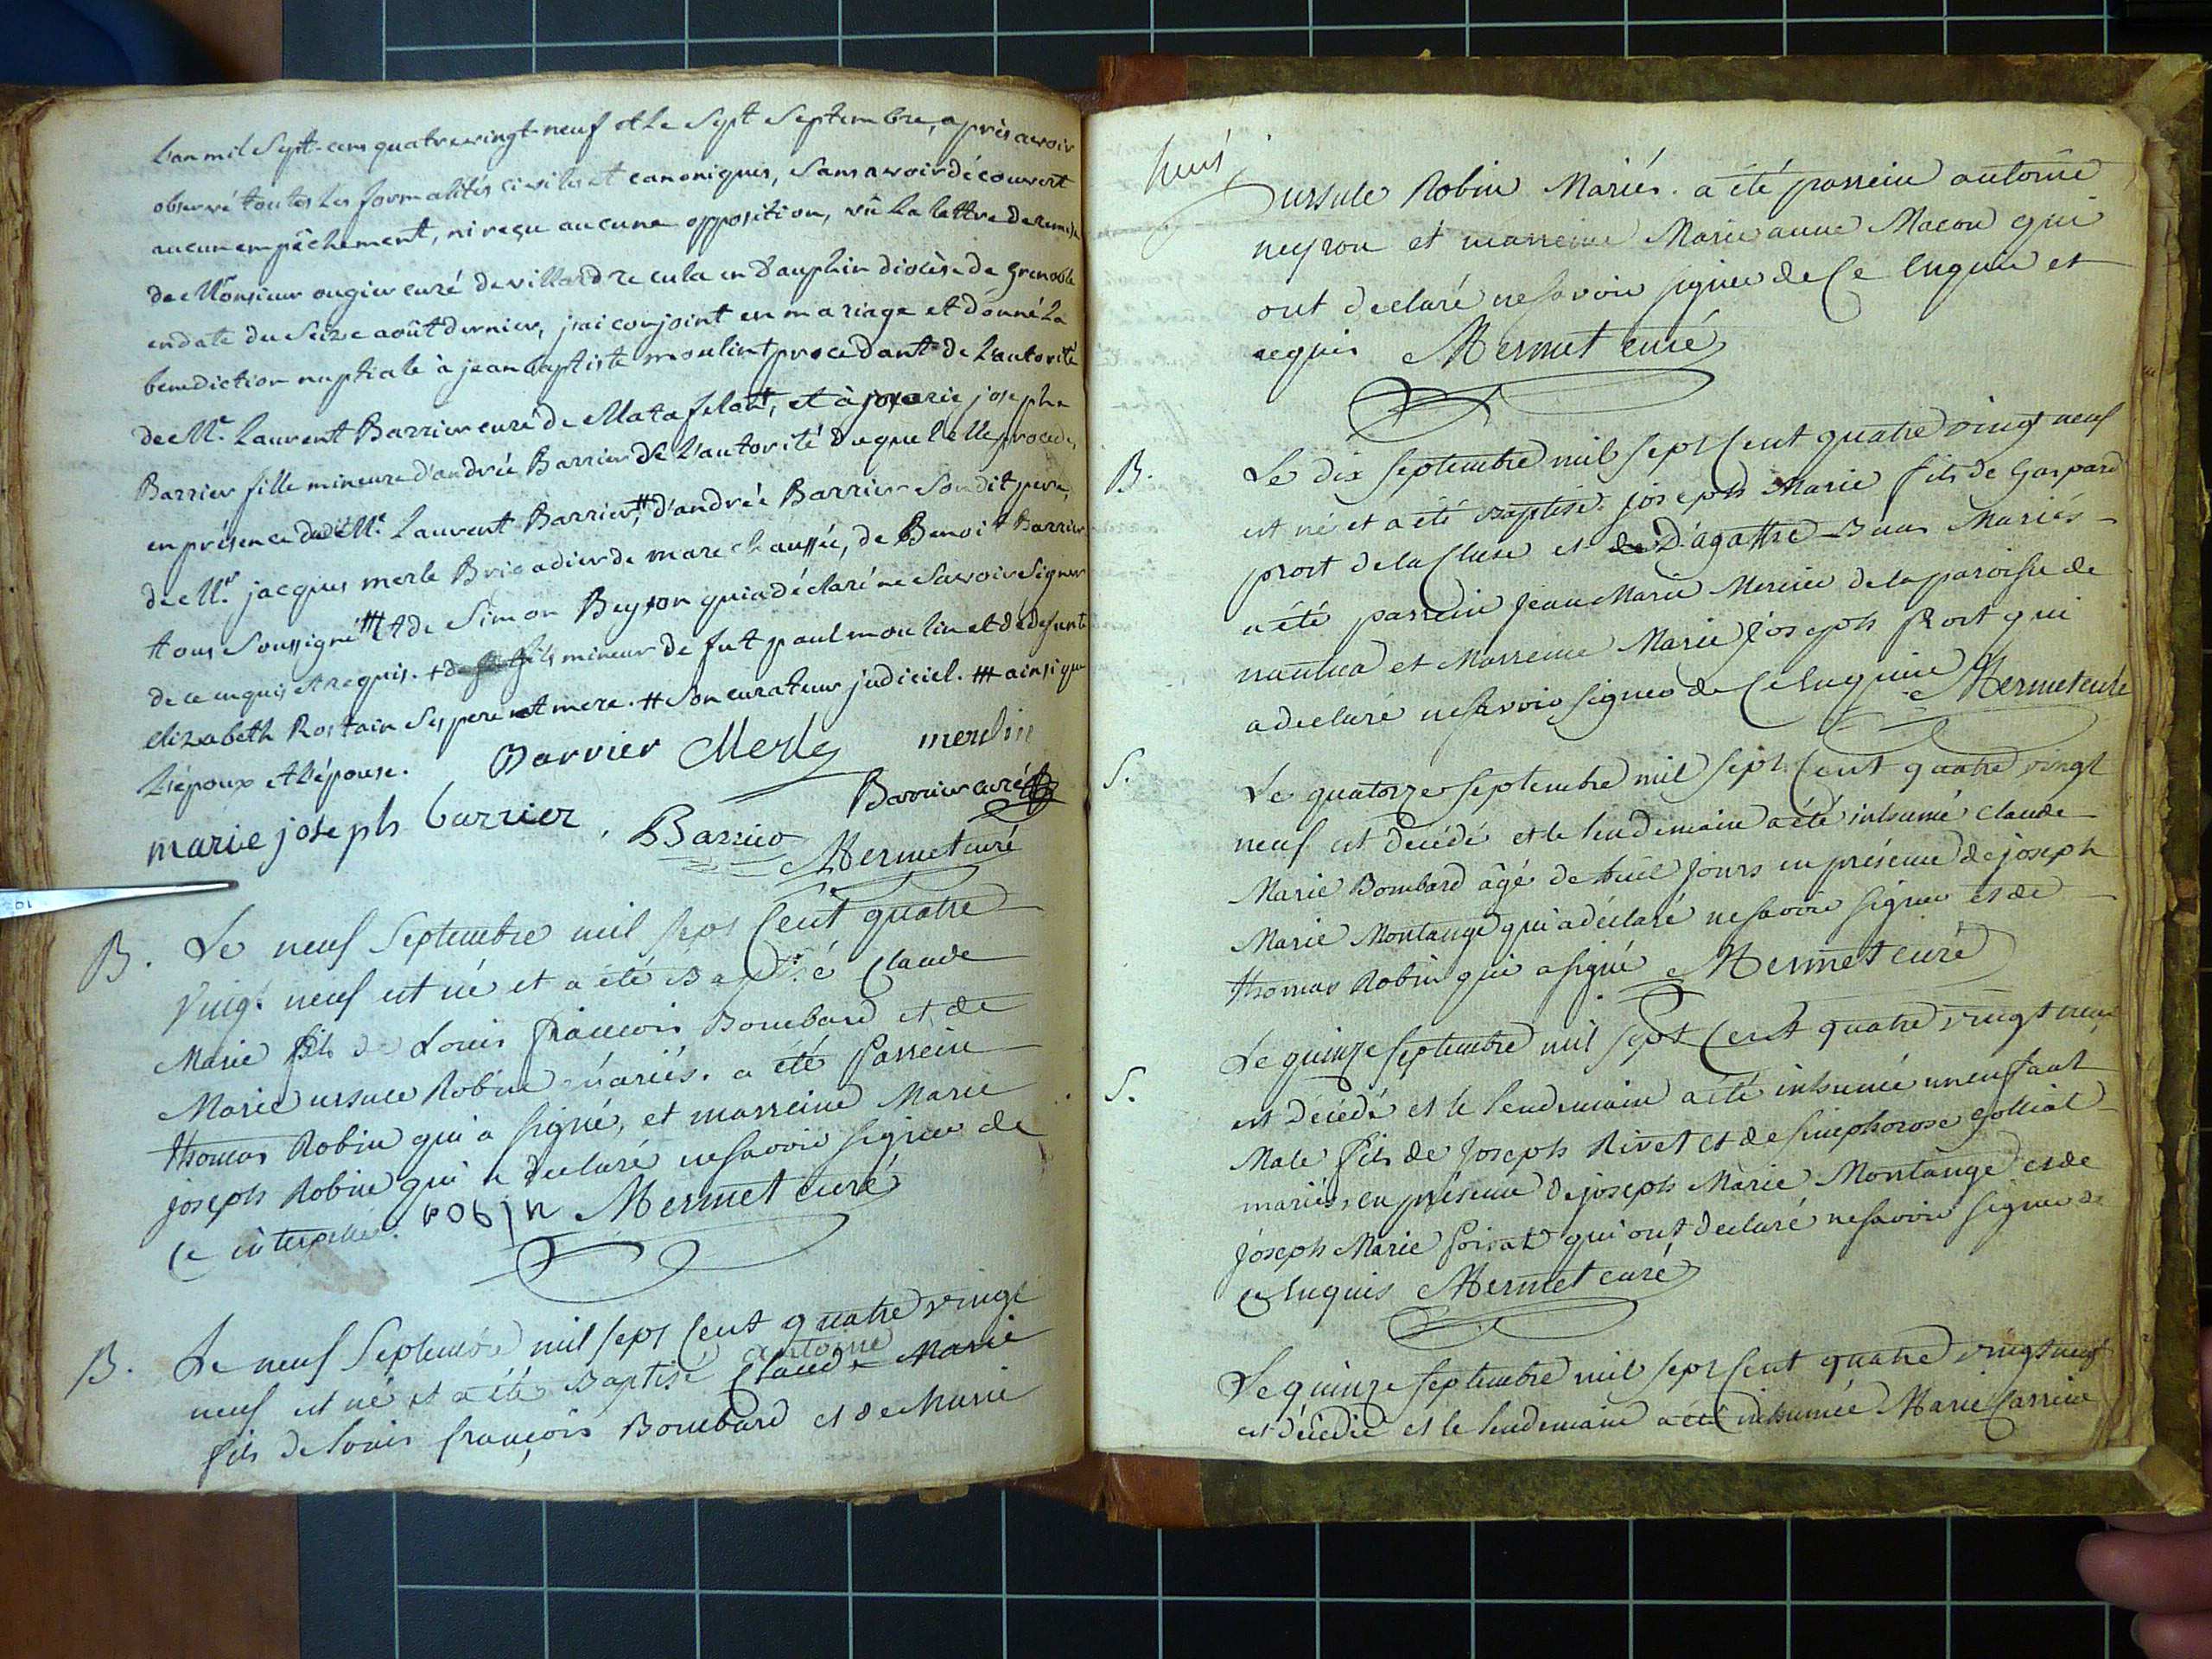 L'an mil Sept-cens quatrevingt-neuf et Le Sept Septembre, après avoir
observé toutes Les formalités civiles et canoniques, Sans avoir découvert
aucun empêchement, ni reçu aucune opposition, vû La lettre de remise
de Monsieur ougier curé de villard recula en Dauphin diocèse de Grenoble
en date du Seize août dernier, j'ai conjoint en mariage et donné La
benediction nuptiale à jean baptiste moulin + procedant de L'autorité
de Mr. Laurent Barrier curé de Matafelont, et à marie josephe
Barrier fille mineure d'andrée Barrier de L'autorité duquel elle procede,
en présence dudit Mr. Laurent Barrier, # d'andrée Barrier Son dit pere,
de Mr. jacques merle Brigadier de marechaussée, de Benoit Barrier
tous Soussigné ### et de Simon Beyson qui a déclaré ne Savoir Signer
de ce enquis et requis. + fils mineur de fut paul moulin et de defunte
elizabeth Rostain Ses pere et mere. # Son curateur judiciel. ### ainsi que
L'époux et L'épouse. Barrier Merle moulin
Barrier curé
marie joseph barrier Barrier
Mermet curé
B. Le neuf Septembre mil sept Cent quatre
Vingt neuf est né et a été Baptisé Claude
Marie fils de Louis françois Bombard et de
Marie ursule Robin mariés. a été Parrein
thomas Robin qui a signé, et marreine Marie
joseph Robin qui a declaré ne savoir signer de
Ce interpellée. Robin Mermet curé
B. Le neuf Septembre mil sept Cent quatre vingt
antoine
neuf est né et a été Baptisé Claude Marie
fils de Louis françois Bombard et de Marie
huit
ursule Robin Mariés. a été parrein antoine
neyron et marreine Marie anne Macon qui
ont declaré ne savoir signer de Ce Enquis et
requis Mermet curé
B. Le dix septembre mil sept Cent quatre vingt neuf
est né et a été Baptisé joseph Marie fils de Gaspard
prost de la Cluse et de D'agathe Buas Mariés
a été parrein Jean Marie Mercier de la paroisse de
nantua et Marreine Marie Joseph Prost qui
a declaré ne savoir signer de Ce Enquise Mermet curé
S. Le quatorze septembre mil sept Cent quatre vingt
neuf est decédé et le lendemain a été inhumé Claude
Marie Bombard âgé de huit Jours en présence de joseph
Marie Montange qui a déclaré ne savoir signer et de
thomas Robin qui a signé Mermet curé
Le quinze septembre mil sept Cent quatre vingt neuf
S. est décédé et le lendemain a été inhumé un enfant
Male fils de Joseph Rivet et de simphorose golliat
mariés, en présence de joseph Marie Montange et de
joseph Marie qui ont declaré ne savoir signer de
ce Enquis Mermet curé
Le quinze septembre mil sept Cent quatre vingt neuf
est décédée et le lendemain a été inhumée Marie